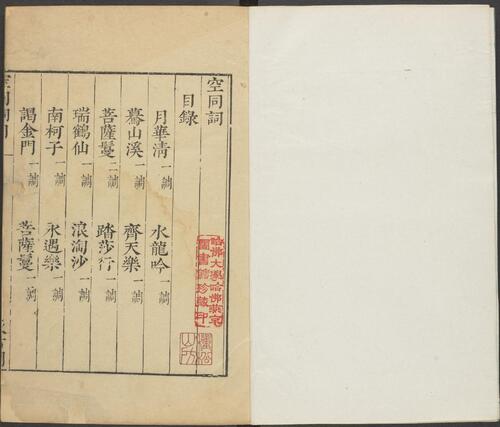 空同詞
目錄
月華清一調 水龍吟一調
驀山溪一調 齊天樂一調
菩薩鬘二調 踏莎行一調
瑞鶴仙一調 浪淘沙一調
南柯子一調 永遇樂一調
謁金門一調 菩薩鬘一調
空同詞目
哈佛大學哈佛燕京
圖書館珍藏印